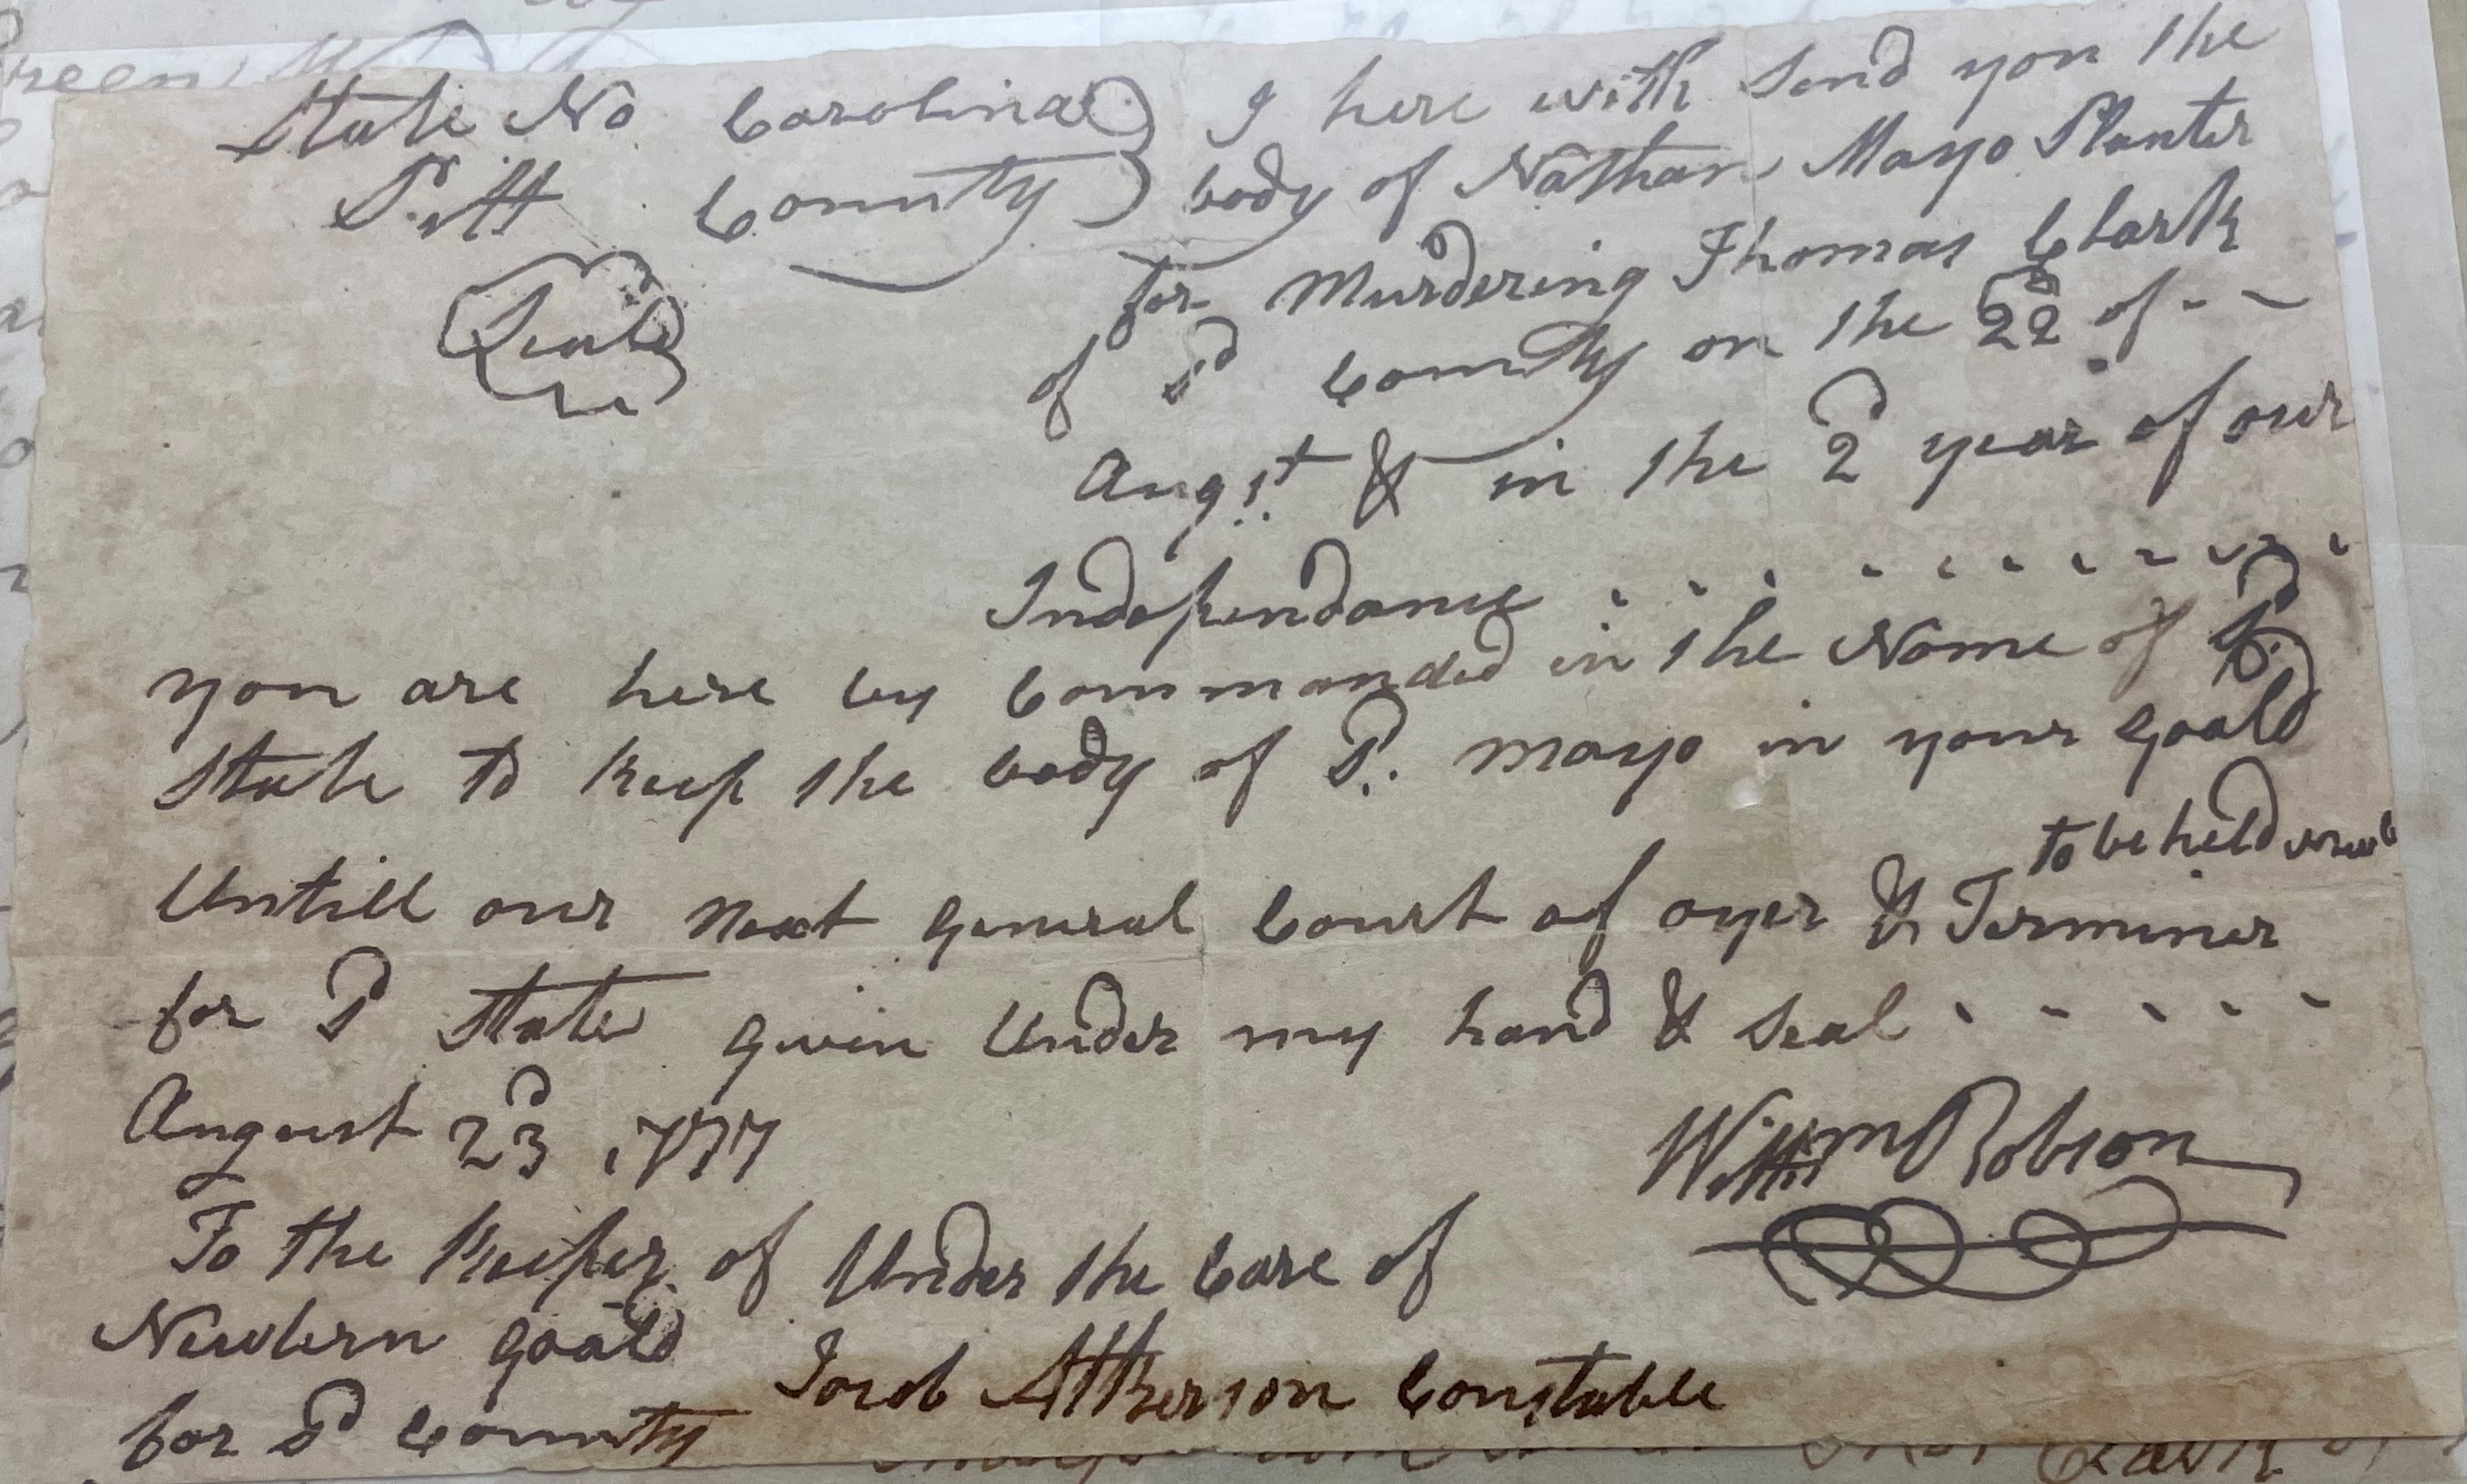 State No Carolina } I here with Send you the
Pitt County } body of Nathan Mayo Planter
Seal
for Murdering Thomas Clark
of sd County on the 22d of - -
Augst & in the 2d year of our
Independance - - - - - - - - - -
you are here by Commanded in the Name of sd
State to keep the body of sd. mayo in your Goald
to be held
Untill our Next General Court of oyer & Terminer
for sd State Given Under my hand & Seal - - - - -
August 23d 1777
Willm Robson
To the Keeper of Under the Care of
Newbern goald
Jacob Atkerson Constable
for sd County